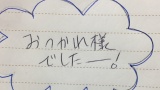 おつかれ様
でしたー!